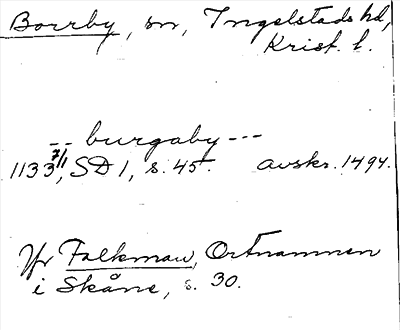 Borrby, sn, Ingelstads hd,
Krist. l.
-- burgaby ---
1133 7/1, SD 1, s. 45. avskr. 1494.
Jfr Falkman, Ortnamnen
i Skåne, s. 30.